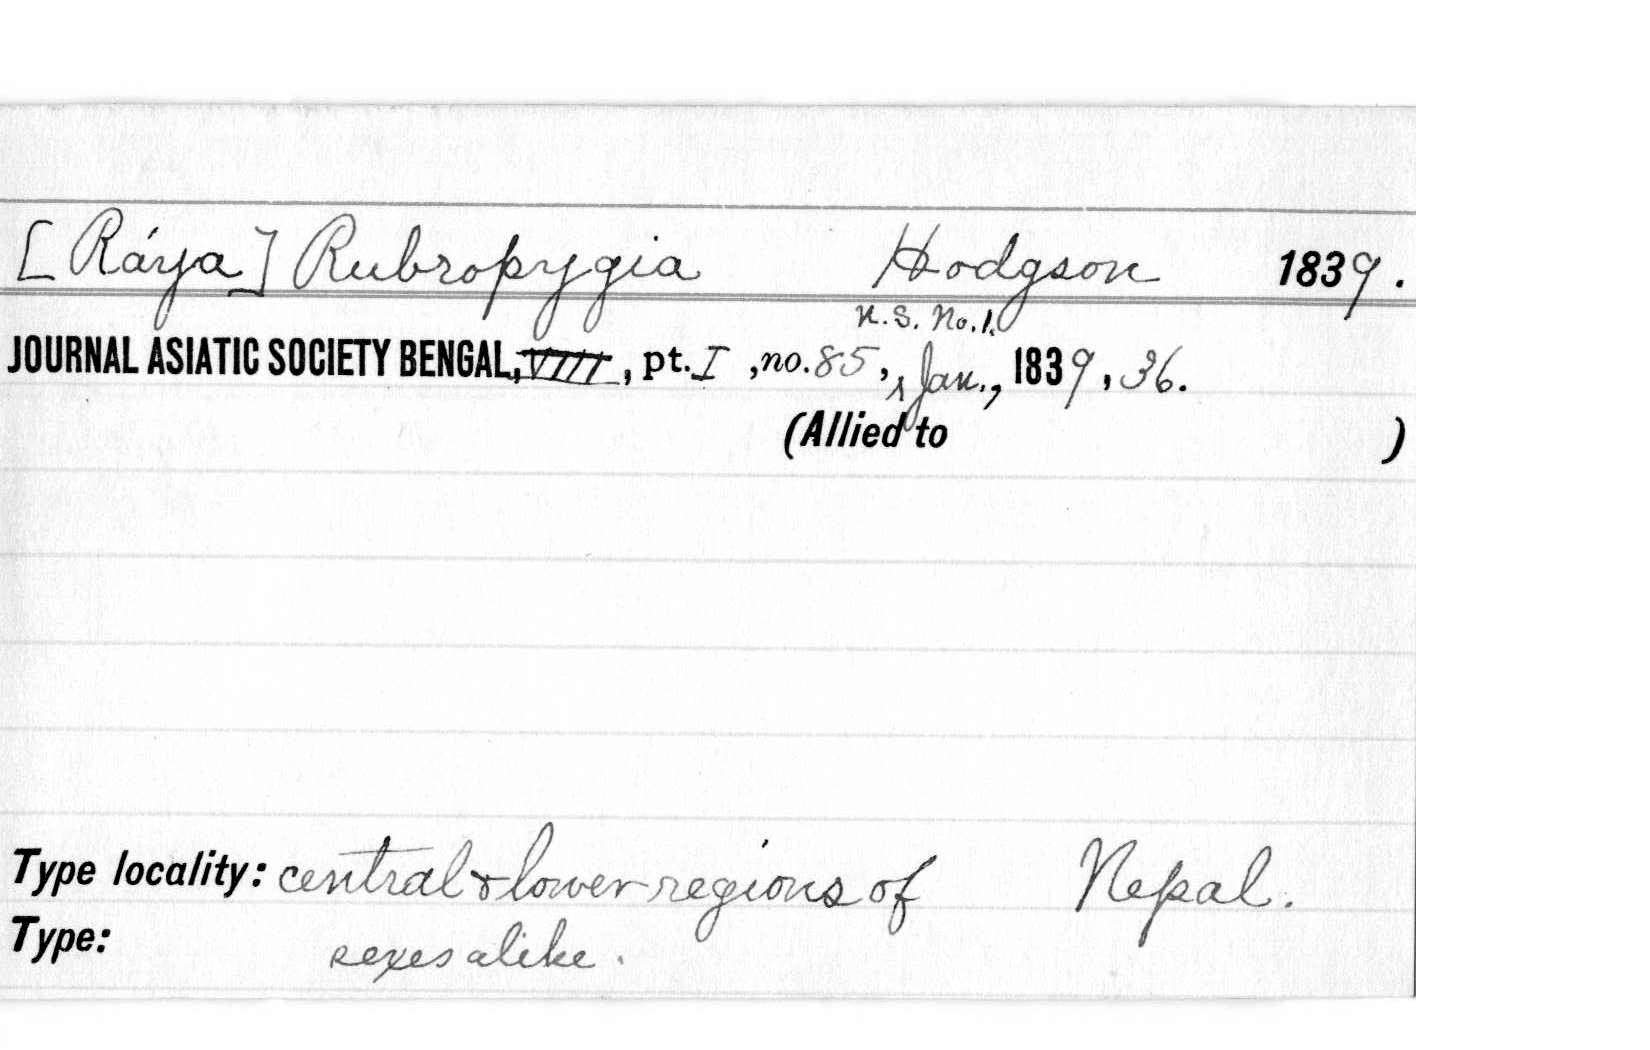 [Ráya] Rubropygia Hodgson 1839.
N.S. No.1.
JOURNAL ASIATIC SOCIETY BENGAL, VIII, pt. I, no. 85, Jan., 1839, 36.
(Allied to )
Type locality: central & lower regions of Nepal.
Type: sexes alike.